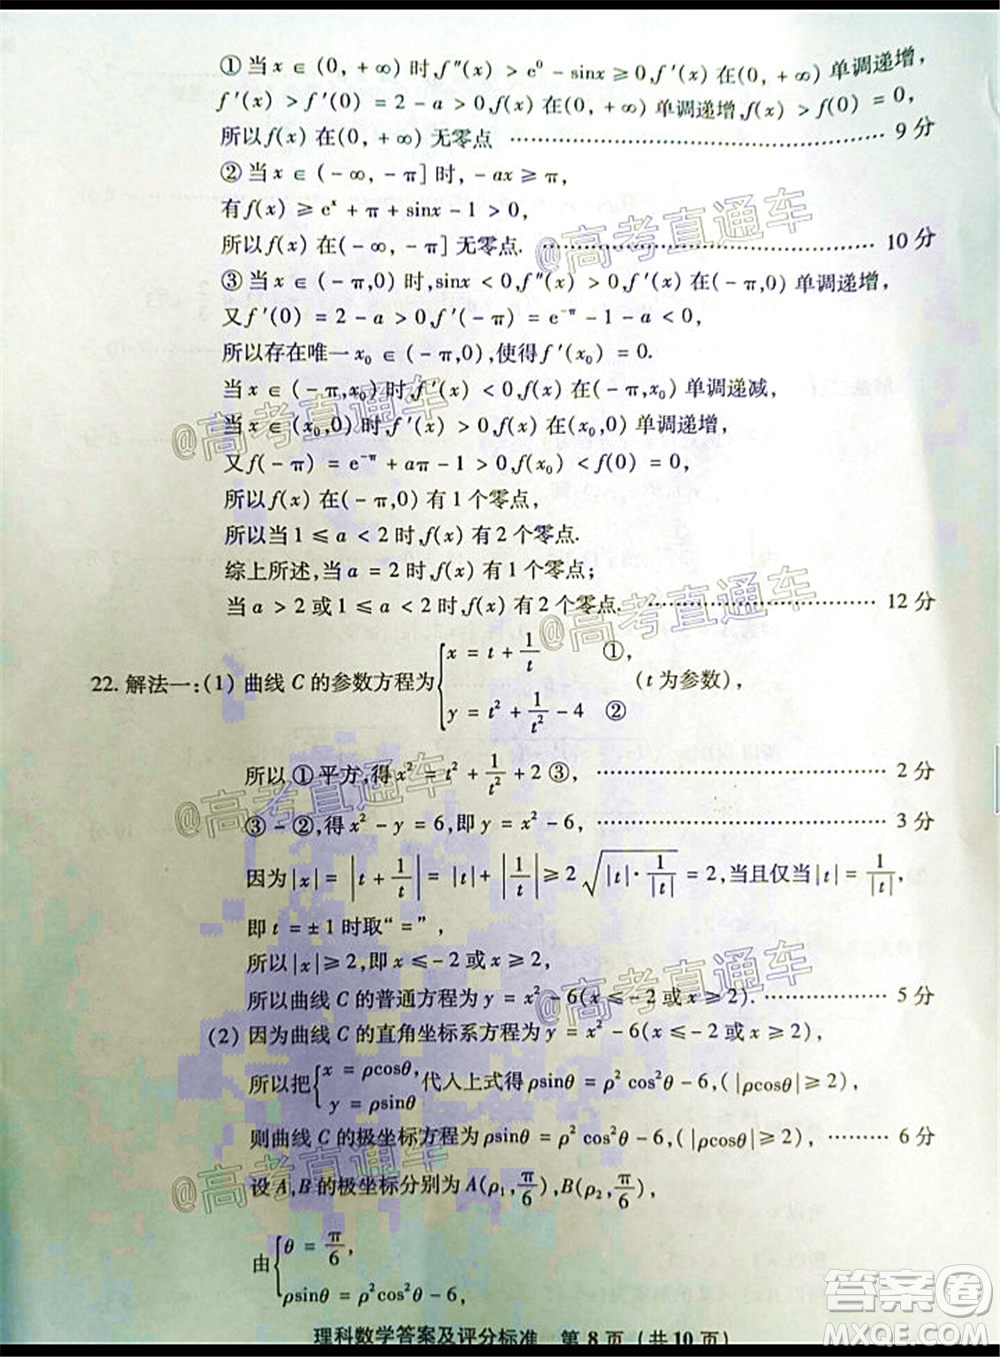 ① 当 x ∈ (0, + ∞) 时, f″(x) > e⁰ - sinx ≥ 0, f′(x) 在 (0, + ∞) 单调递增,
f′(x) > f′(0) = 2 - a > 0, f(x) 在 (0, + ∞) 单调递增, f(x) > f(0) = 0,
所以 f(x) 在 (0, + ∞) 无零点 ………… 9 分
② 当 x ∈ ( - ∞, - π] 时, - ax ≥ π,
有 f(x) ≥ eˣ + π + sinx - 1 > 0,
所以 f(x) 在 ( - ∞, - π] 无零点. ………… 10 分
③ 当 x ∈ ( - π,0) 时, sinx < 0, f″(x) > 0, f′(x) 在 ( - π,0) 单调递增,
又 f′(0) = 2 - a > 0, f′( - π) = e^{-π} - 1 - a < 0,
所以存在唯一 x₀ ∈ ( - π,0), 使得 f′(x₀) = 0.
当 x ∈ ( - π,x₀) 时, f′(x) < 0, f(x) 在 ( - π,x₀) 单调递减,
当 x ∈ (x₀,0) 时, f′(x) > 0, f(x) 在 (x₀,0) 单调递增,
又 f( - π) = e^{-π} + aπ - 1 > 0, f(x₀) < f(0) = 0,
所以 f(x) 在 ( - π,0) 有 1 个零点.
所以当 1 ≤ a < 2 时, f(x) 有 2 个零点.
综上所述, 当 a = 2 时, f(x) 有 1 个零点;
当 a > 2 或 1 ≤ a < 2 时, f(x) 有 2 个零点. ………… 12 分
22. 解法一: (1) 曲线 C 的参数方程为 { x = t + 1/t ①, y = t² + 1/t² - 4 ② (t 为参数),
所以 ① 平方, 得 x² = t² + 1/t² + 2 ③, ………… 2 分
③ - ②, 得 x² - y = 6, 即 y = x² - 6, ………… 3 分
因为 |x| = |t + 1/t| = |t| + |1/t| ≥ 2√(|t|·1/|t|) = 2, 当且仅当 |t| = 1/|t|,
即 t = ± 1 时取“ = ”,
所以 |x| ≥ 2, 即 x ≤ - 2 或 x ≥ 2,
所以曲线 C 的普通方程为 y = x² - 6(x ≤ - 2 或 x ≥ 2). ………… 5 分
(2) 因为曲线 C 的直角坐标系方程为 y = x² - 6(x ≤ - 2 或 x ≥ 2),
所以把 { x = ρcosθ y = ρsinθ 代入上式得 ρsinθ = ρ² cos²θ - 6, ( |ρcosθ| ≥ 2),
则曲线 C 的极坐标方程为 ρsinθ = ρ² cos²θ - 6, ( |ρcosθ| ≥ 2), ……… 6 分
设 A, B 的极坐标分别为 A(ρ₁, π/6), B(ρ₂, π/6),
由 { θ = π/6, ρsinθ = ρ²cos²θ - 6,
理科数学答案及评分标准 第 8 页 (共 10 页)
@高考直通车
@高考直通车
@高考直通车
@高考直通车
@高考直通车
@高考直通车
@高考直通车
答案圈
MXQE.COM